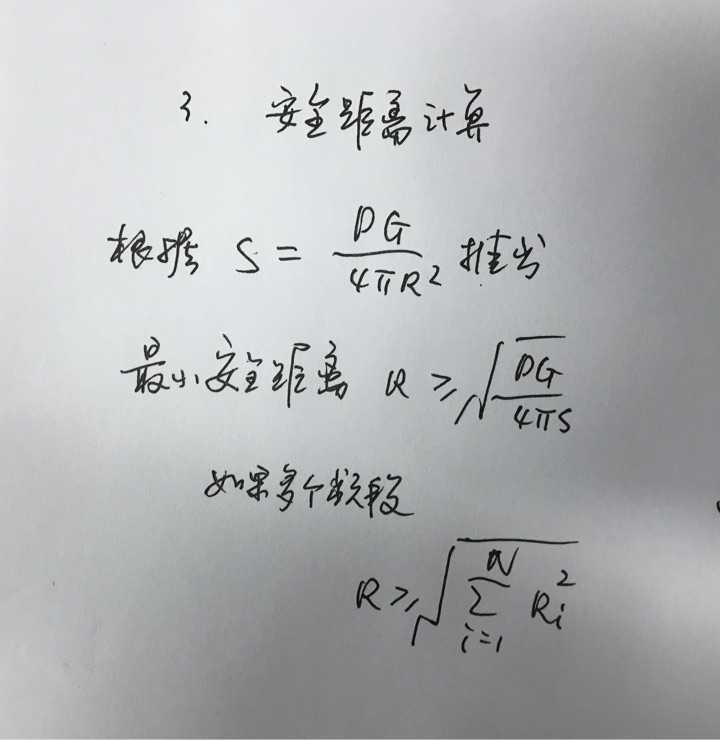 3. 安全距离计算
根据 S = \frac{PG}{4πR^2} 推出
最小安全距离 R ≥ \sqrt{\frac{PG}{4πS}}
如果多个频段
R ≥ \sqrt{\sum_{i=1}^{N} R_i^2}